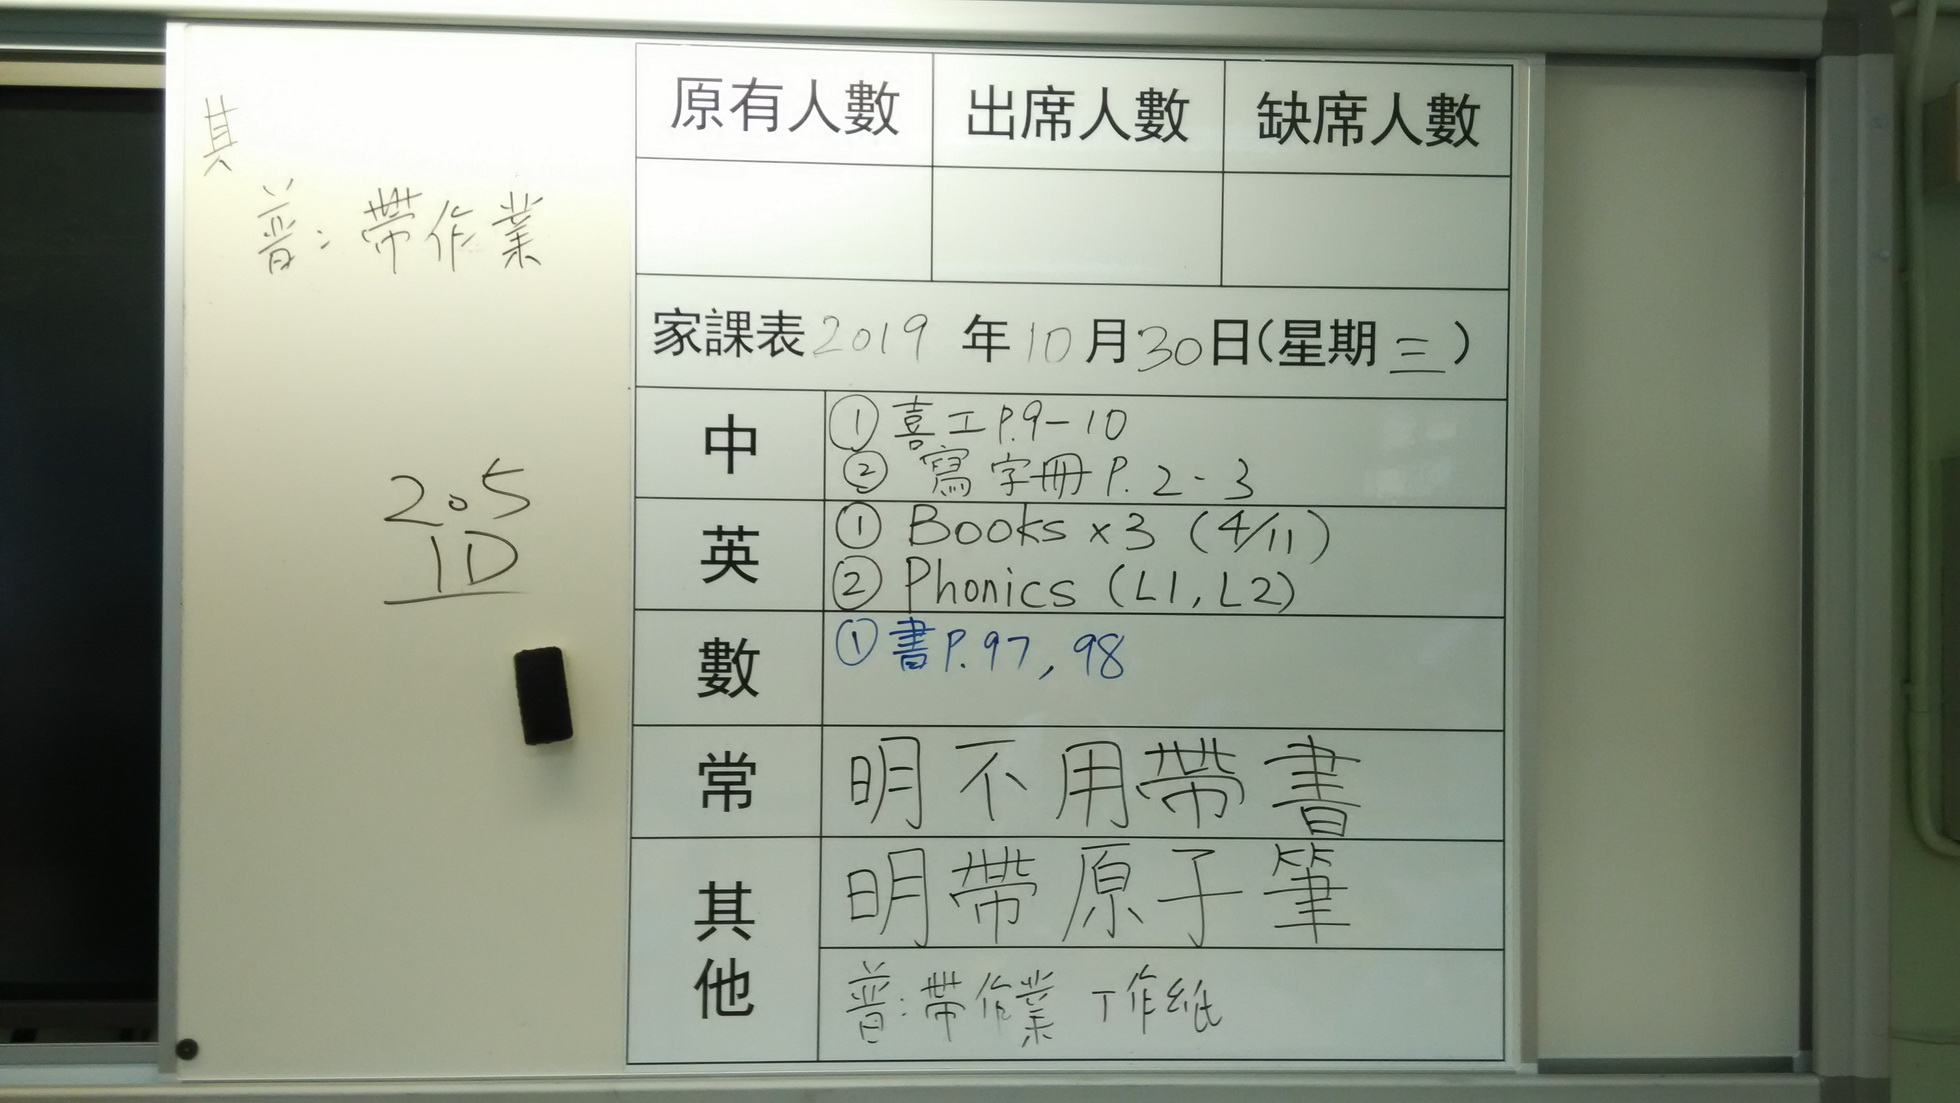 其
普：帶作業
2.5
10
原有人數 出席人數 缺席人數
家課表2019年10月30日(星期三)
中
① 喜工P.9-10
② 寫字冊P.2-3
英
① Books x3 (4/11)
② Phonics (L1, L2)
數
① 書P.97, 98
常
明不用帶書
其他
明帶原子筆
普：帶作業 工作紙